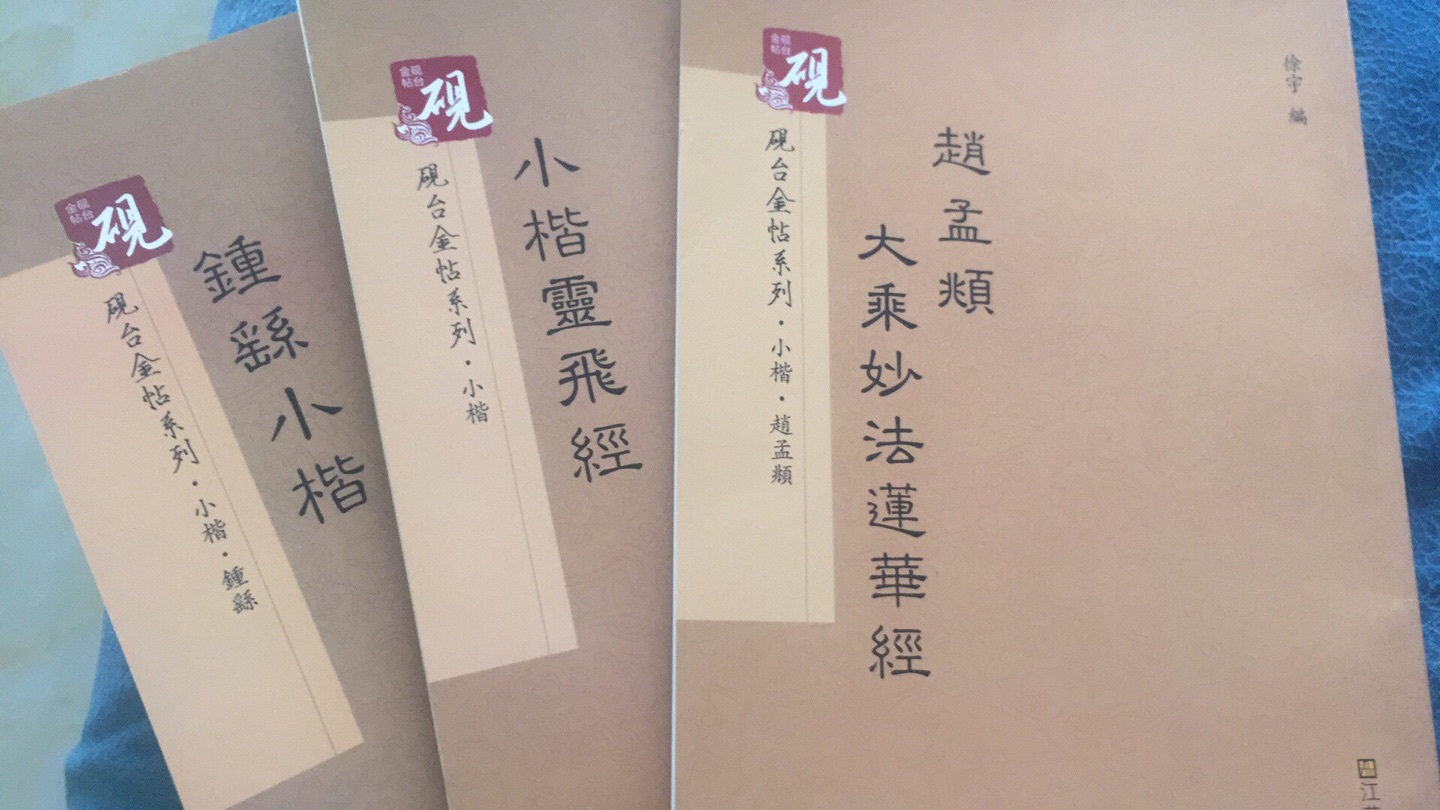 硯台
金帖
硯
鍾繇小楷
硯台金帖系列·小楷·鍾繇
硯台
金帖
硯
小楷靈飛經
硯台金帖系列·小楷
硯台
金帖
硯
徐宇 編
趙孟頫
大乘妙法蓮華經
硯台金帖系列·小楷·趙孟頫
江